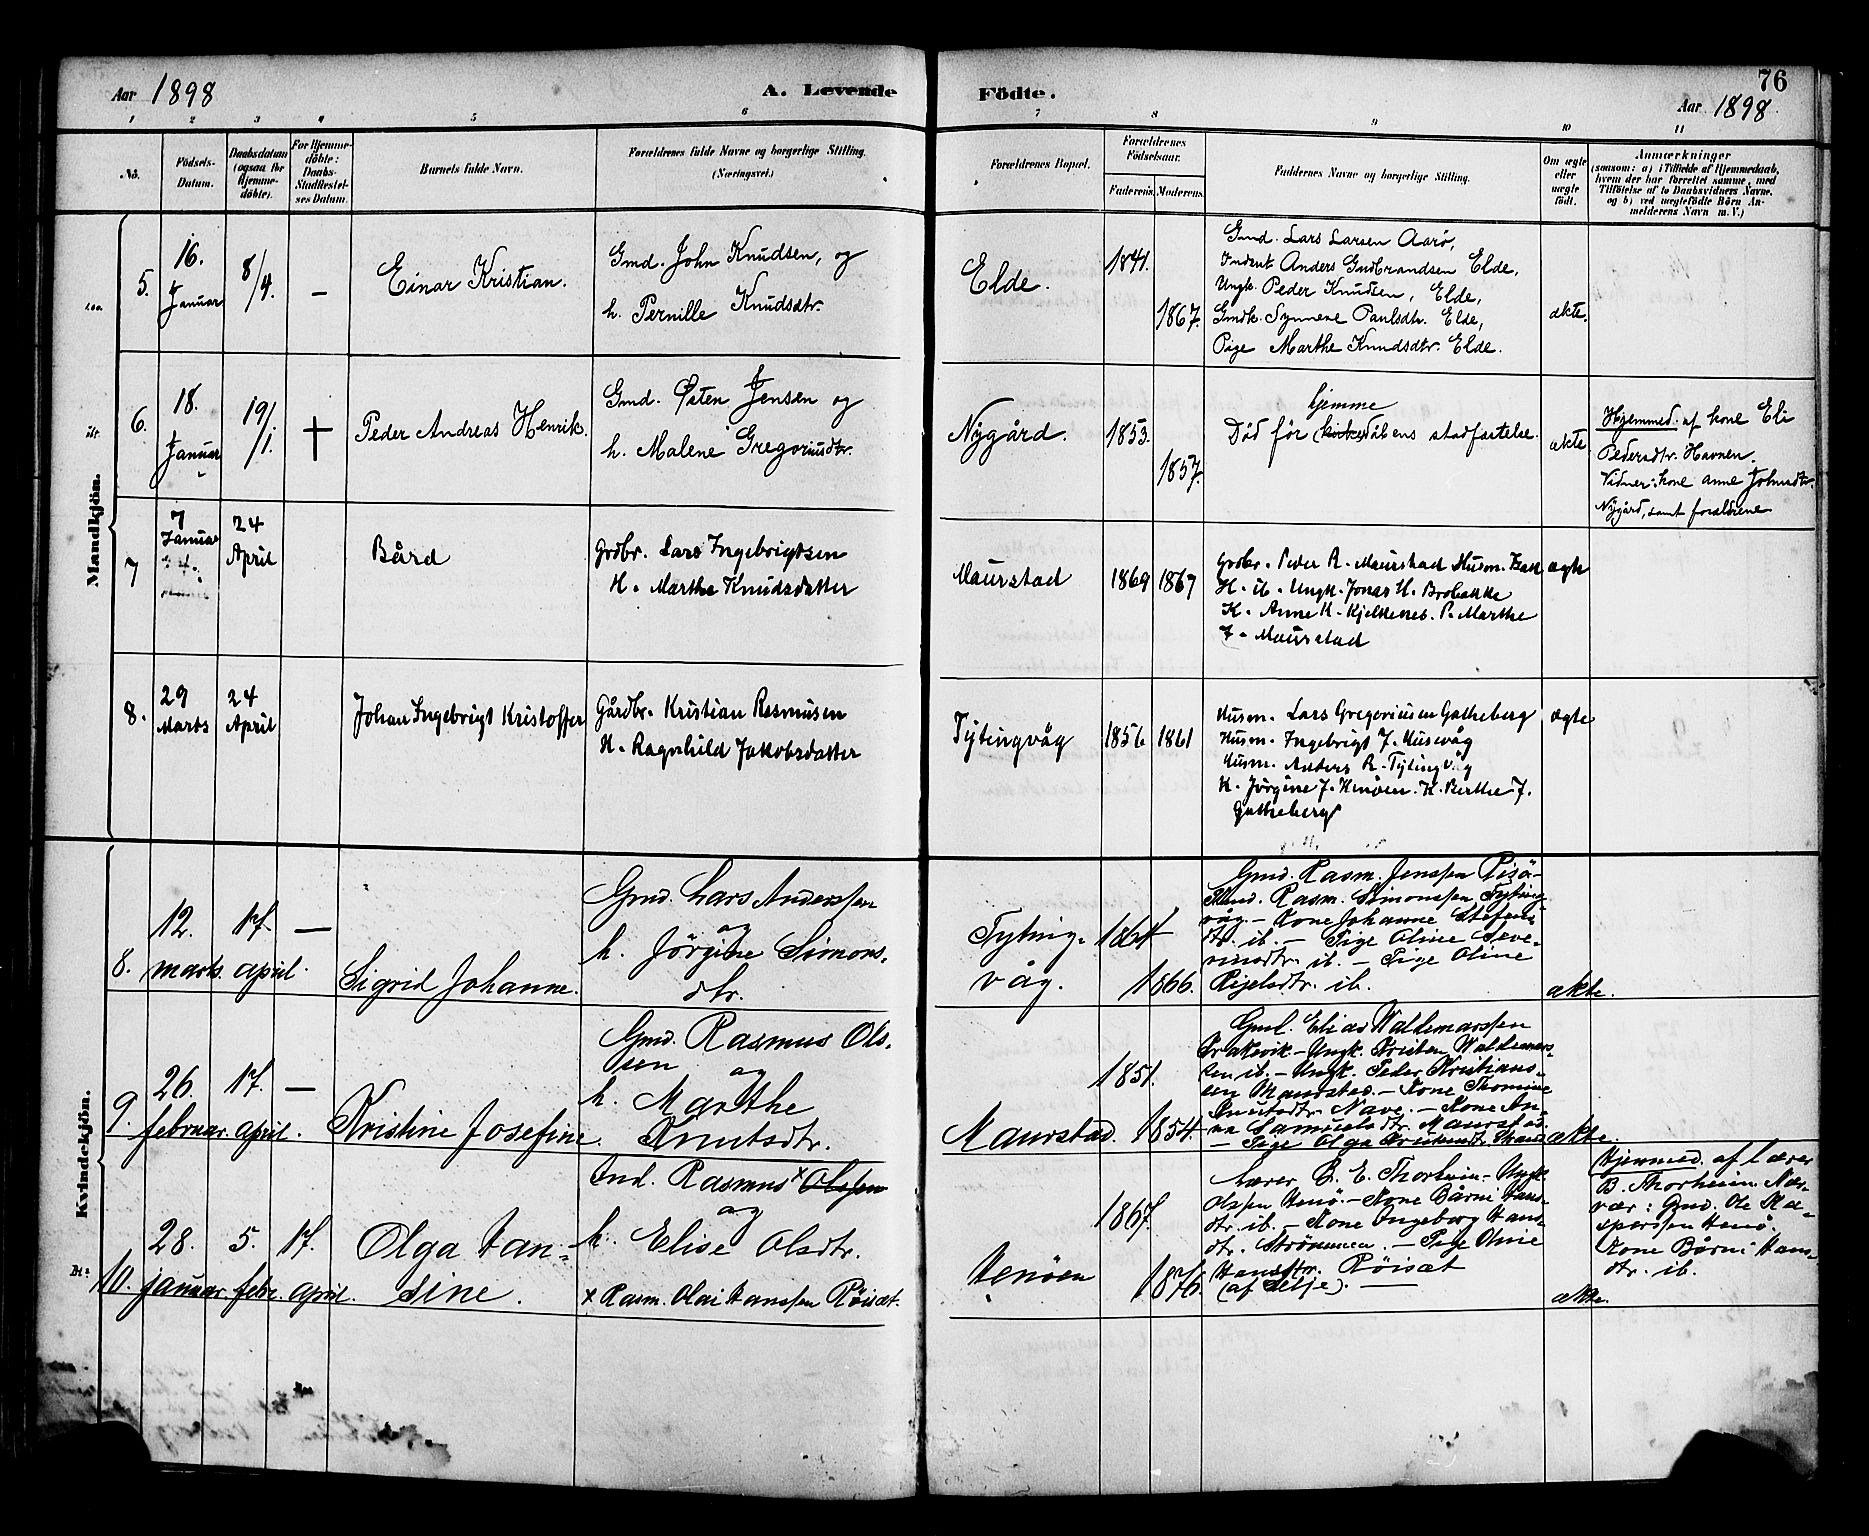 Aar 1898
A. Levende
Födte.
76
Aar 1898
1 2 3 4 5 6 7 8 9 10 11
No.
Födsels-
Datum.
Daabsdatum
(ogsaa for
Hjemme-
döbte).
For Hjemme-
döbte:
Daabs-
Stadfæstel-
ses Datum.
Barnets fulde Navn.
Forældrenes fulde Navne og borgerlige Stilling.
(Næringsvei.)
Forældrenes Bopæl.
Forældrenes
Födselsaar.
Faderens. Moderens.
Faddernes Navne og borgerlige Stilling.
Om ægte
eller
uægte
födt.
Anmærkninger
(saasom: a) i Tilfælde af Hjemmedaab,
hvem der har forrettet samme, med
Tilföielse af to Daabsvidners Navne,
og b) ved uægtefödte Börn An-
melderens Navn m. V.)
Mandkjön.
5.
16.
Januar
8/4.
—
Einar Kristian.
Gmd. John Knudsen, og
h. Pernille Knudsdtr.
Elde.
1841.
1867.
Gmd. Lars Larsen Aarø,
Inderst Anders Gudbrandsen Elde,
Ungk. Peder Knudsen, Elde,
Gmdk. Synneve Paulsdtr. Elde,
Pige Marthe Knudsdtr. Elde.
ækte.
6.
18.
Januar
19/1.
+
Peder Andreas Henrik.
Gmd. Østen Jensen og
h. Malene Gregoriusdtr.
Nygård.
1853.
1857.
hjemme
Död för dåbens stadfæstelse.
ækte
Hjemmed. af kone Eli
Pedersdtr. Havnen.
Vidner: kone Anne Johnsdtr.
Nygård, samt forældrene
7
7
Januar
24
April
Bård
Grdbr. Lars Ingebrigtsen
H. Marthe Knudsdatter
Maurstad
1869
1867
Grdbr. Peder R. Maurstad Husm.
H. ib. Ungk. Jonas H. Brobakke
K. Anne K. Kjelkenes. P. Marthe
J. Maurstad
ægte
8.
29
Marts
24
April
Johan Ingebrigt Kristoffer
Gårdbr. Kristian Rasmusen
H. Ragnhild Jakobsdatter
Tytingvåg
1856
1861
Husm. Lars Gregoriusen Gotheberg
Husm. Ingebrigt J. Husevåg
Husm. Anders R. Tytingvåg
K. Jörgine J. Henöen. K. Berthe J.
Gotheberg
ægte
Kvindekjön.
8.
12.
marts.
17.
april.
—
Sigrid Johanne.
Gmd. Lars Anderssen
og
h. Jörgine Simons-
dtr.
Tyting-
våg.
1864
1866.
Gmd. Rasm. Jenssen
Rasm. Simonssen Tyting-
våg — Kone Johanne Stefens-
dtr. ib. — Pige Oline Seve-
rinsdtr. ib. — Pige Oline
ib.
ækte.
9.
26.
februar.
17.
april.
—
Kristine Josefine.
Gmd. Rasmus Ols-
sen og
h. Marthe
Knutsdtr.
Maurstad.
1851.
1854.
Gmd. Elias Waldemarssen
— Ungk. Waldemars-
sen ib. — Ungk. Peder Kristians-
sen Maurstad. — Kone Thomine
Knutsdtr. Nave. — Kone An-
na Samuelsdtr. Maurstad.
— Pige Olga
ækte.
10.
28.
januar.
5.
febr.
17.
april.
Olga Han-
sine.
Ind. Rasmus × Olssen
og
h. Elise Olsdtr.
× Rasm. Olai Hanssen Röisæt.
Henöen
1867.
1876.
Lærer B. E. Thorheim — Ungk.
Olssen Henö. — Kone Bårni Hans-
dtr. ib. — Kone Ingeborg Hans-
dtr. Strömmen. — Pige Oline
Hansdtr. Röisæt
(af Selje). —
ækte.
Hjemmed. af lærer
B. Thorheim. Nær-
vær: Gmd. Ole Ka-
sperssen Henö.
Kone Bårni Hans-
dtr. ib.